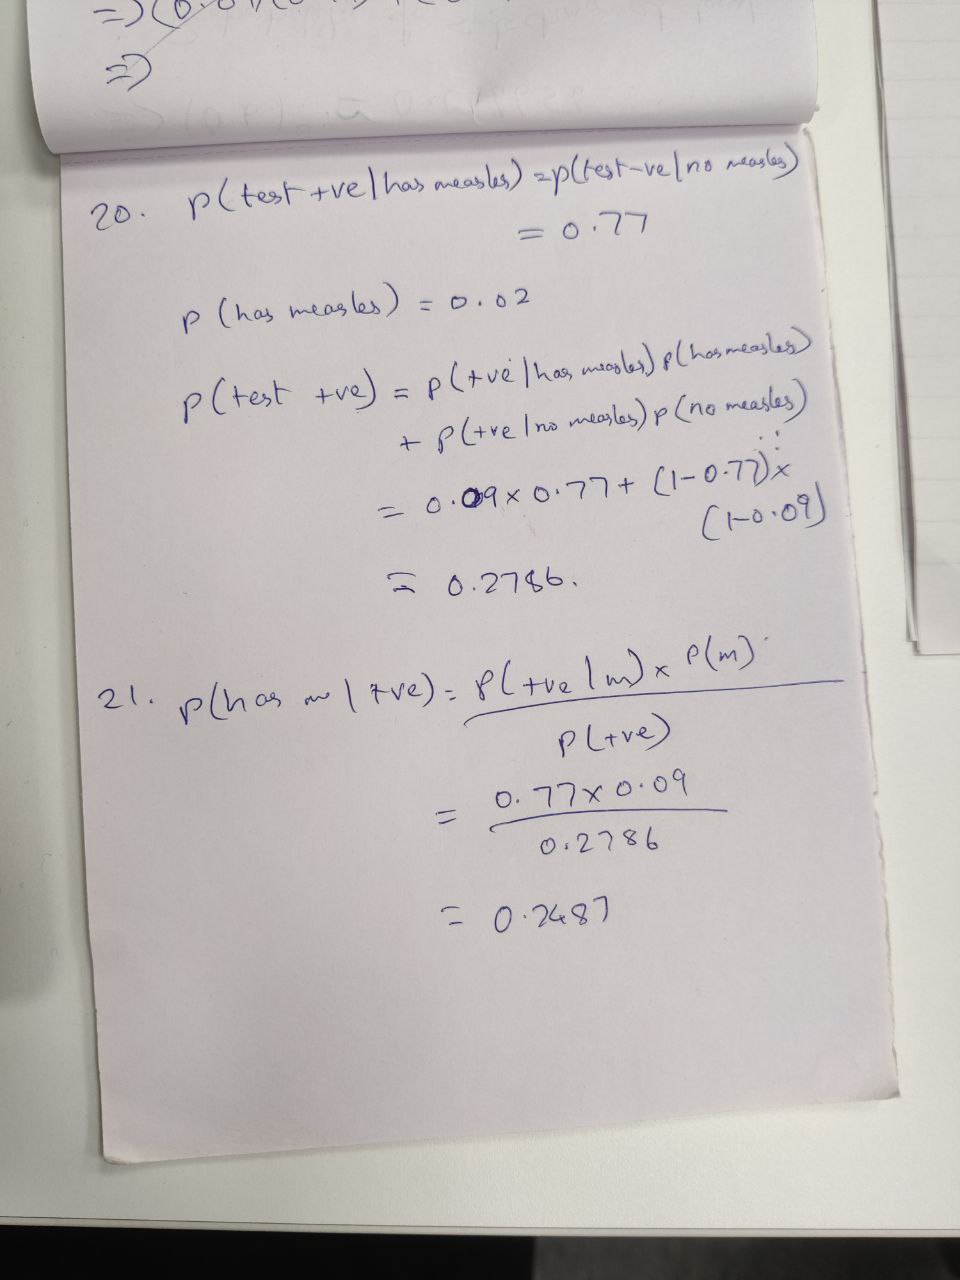 =)
20. P(test +ve | has measles) = p(test -ve | no measles)
= 0.77
P (has measles) = 0.02
P(test +ve) = P(+ve | has measles) p(has measles)
+ P(+ve | no measles) p (no measles)
= 0.09 x 0.77 + (1-0.77) x
(1-0.09)
= 0.2786.
21. P(has m | +ve) = P(+ve | m) x P(m)
P(+ve)
= 0.77 x 0.09
0.2786
= 0.2487